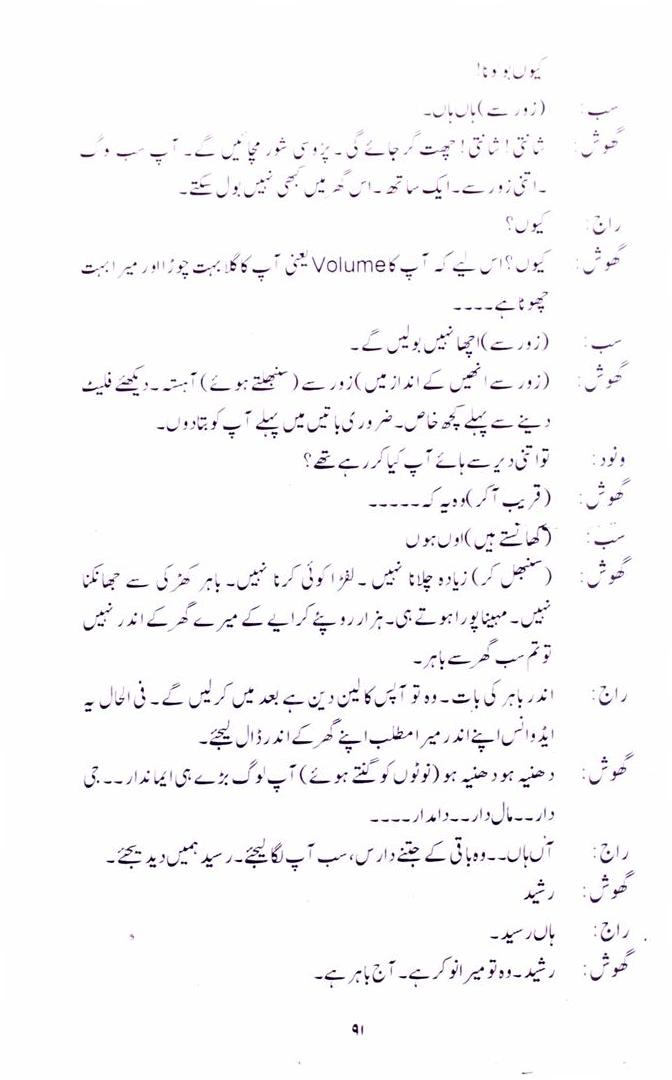 کیوں بودنا!
سب: (زور سے) ہاں ہاں۔
گھوش: شانتی! شانتی! چھت گر جائے گی۔ پڑوسی شور مچائیں گے۔ آپ سب لوگ
۔ اتنی زور سے۔ ایک ساتھ۔ اس گھر میں کبھی نہیں بول سکتے۔
راج: کیوں؟
گھوش: کیوں؟ اس لیے کہ آپ کا Volume یعنی آپ کا گلا بہت چوڑا اور میرا بہت
چھوٹا ہے۔۔۔۔
سب: (زور سے) اچھا نہیں بولیں گے۔
گھوش: (زور سے انھیں کے انداز میں) زور سے (سنبھلتے ہوئے) آہستہ۔ دیکھئے فلیٹ
دینے سے پہلے کچھ خاص۔ ضروری باتیں میں پہلے آپ کو بتا دوں۔
ونود: تو اتنی دیر سے ہائے آپ کیا کر رہے تھے؟
گھوش: (قریب آکر) وہ یہ کہ۔۔۔۔۔
سب: (کھانستے ہیں) اوں ہوں
گھوش: (سنبھل کر) زیادہ چلانا نہیں۔ لفڑا کوئی کرنا نہیں۔ باہر کھڑکی سے جھانکنا
نہیں۔ مہینا پورا ہوتے ہی۔ ہزار روپئے کرایے کے میرے گھر کے اندر نہیں
تو تم سب گھر سے باہر۔
راج: اندر باہر کی بات۔ وہ تو آپس کا لین دین ہے بعد میں کر لیں گے۔ فی الحال یہ
ایڈوانس اپنے اندر میرا مطلب اپنے گھر کے اندر ڈال لیجئے۔
گھوش: دھنیہ ہو دھنیہ ہو (نوٹوں کو گنتے ہوئے) آپ لوگ بڑے ہی ایماندار۔۔ جی
دار۔۔ مال دار۔۔ دامدار۔۔۔۔
راج: آں ہاں۔۔ وہ باقی کے جتنے دار س، سب آپ لگا لیجئے۔ رسید ہمیں دیدیجئے۔
گھوش: رشید
راج: ہاں رسید۔
گھوش: رشید۔ وہ تو میرا نوکر ہے۔ آج باہر ہے۔
۹۱